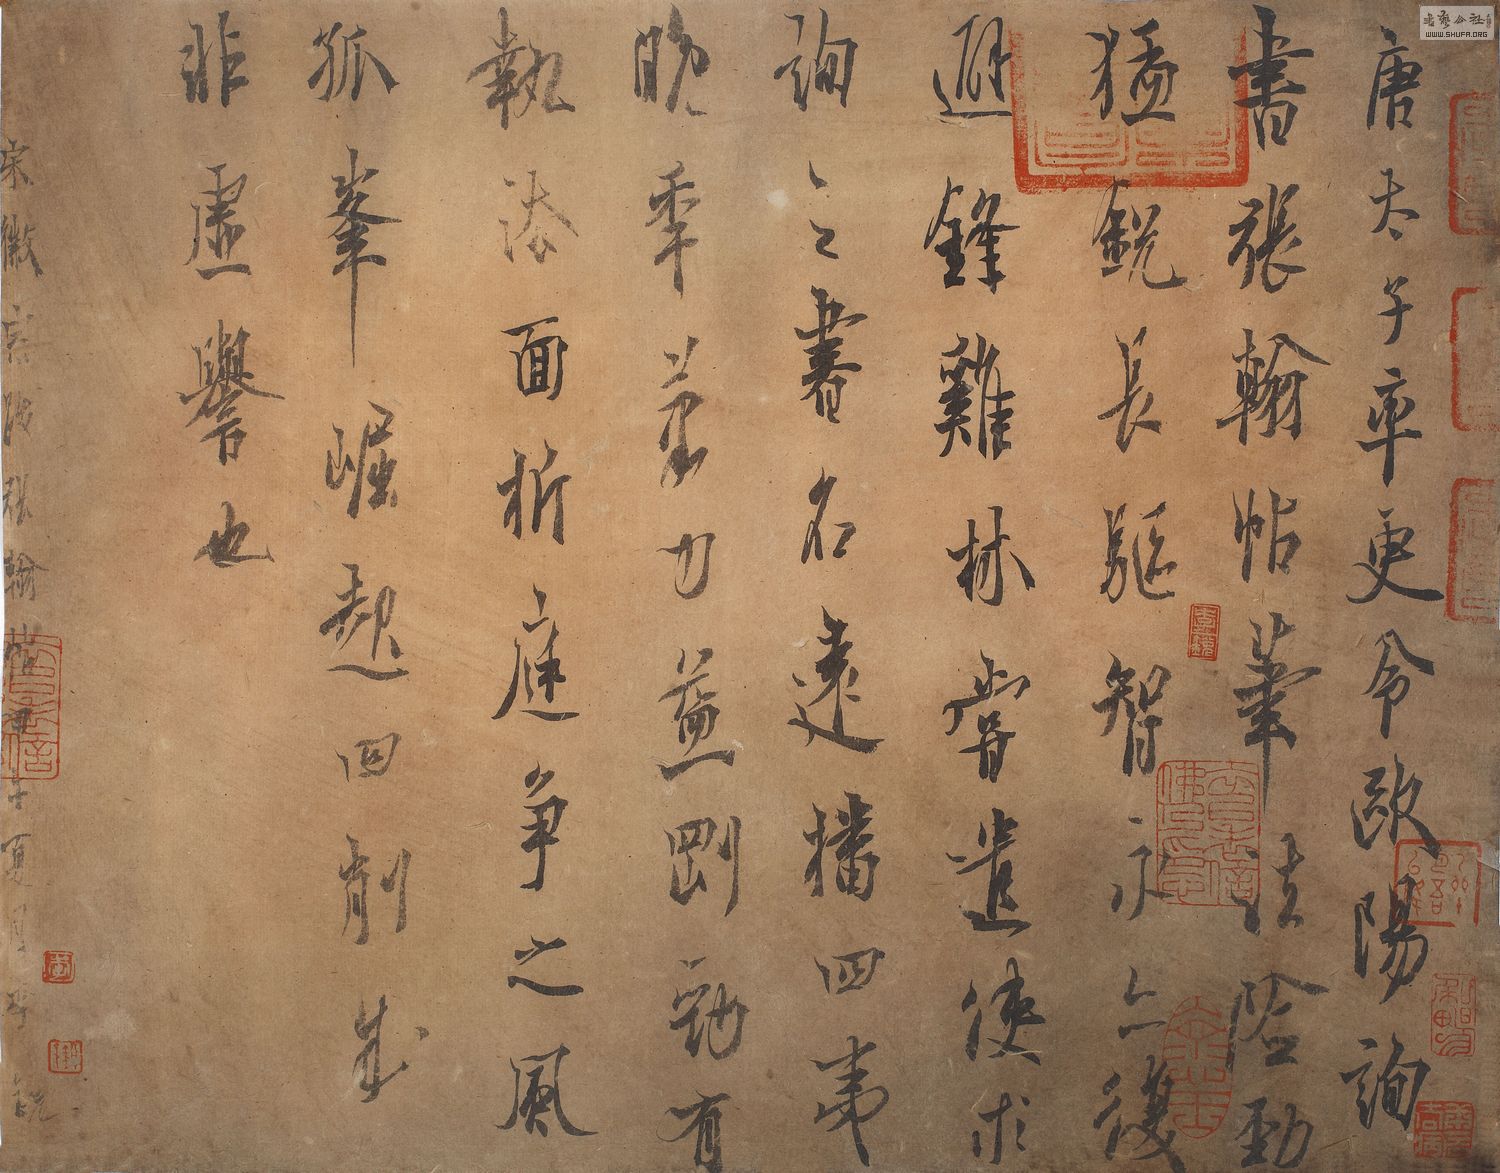 唐太子率更令歐陽詢
書張翰帖筆法險勁
猛銳長驅智永亦復
避鋒雞林嘗遣使求
詢之書名遠播四夷
晚年筆力益剛勁有
執法面折庭爭之風
孤峯崛起四削成
非虛譽也
宋徽宗跋張翰帖
書藝公社
WWW.SHUFA.ORG